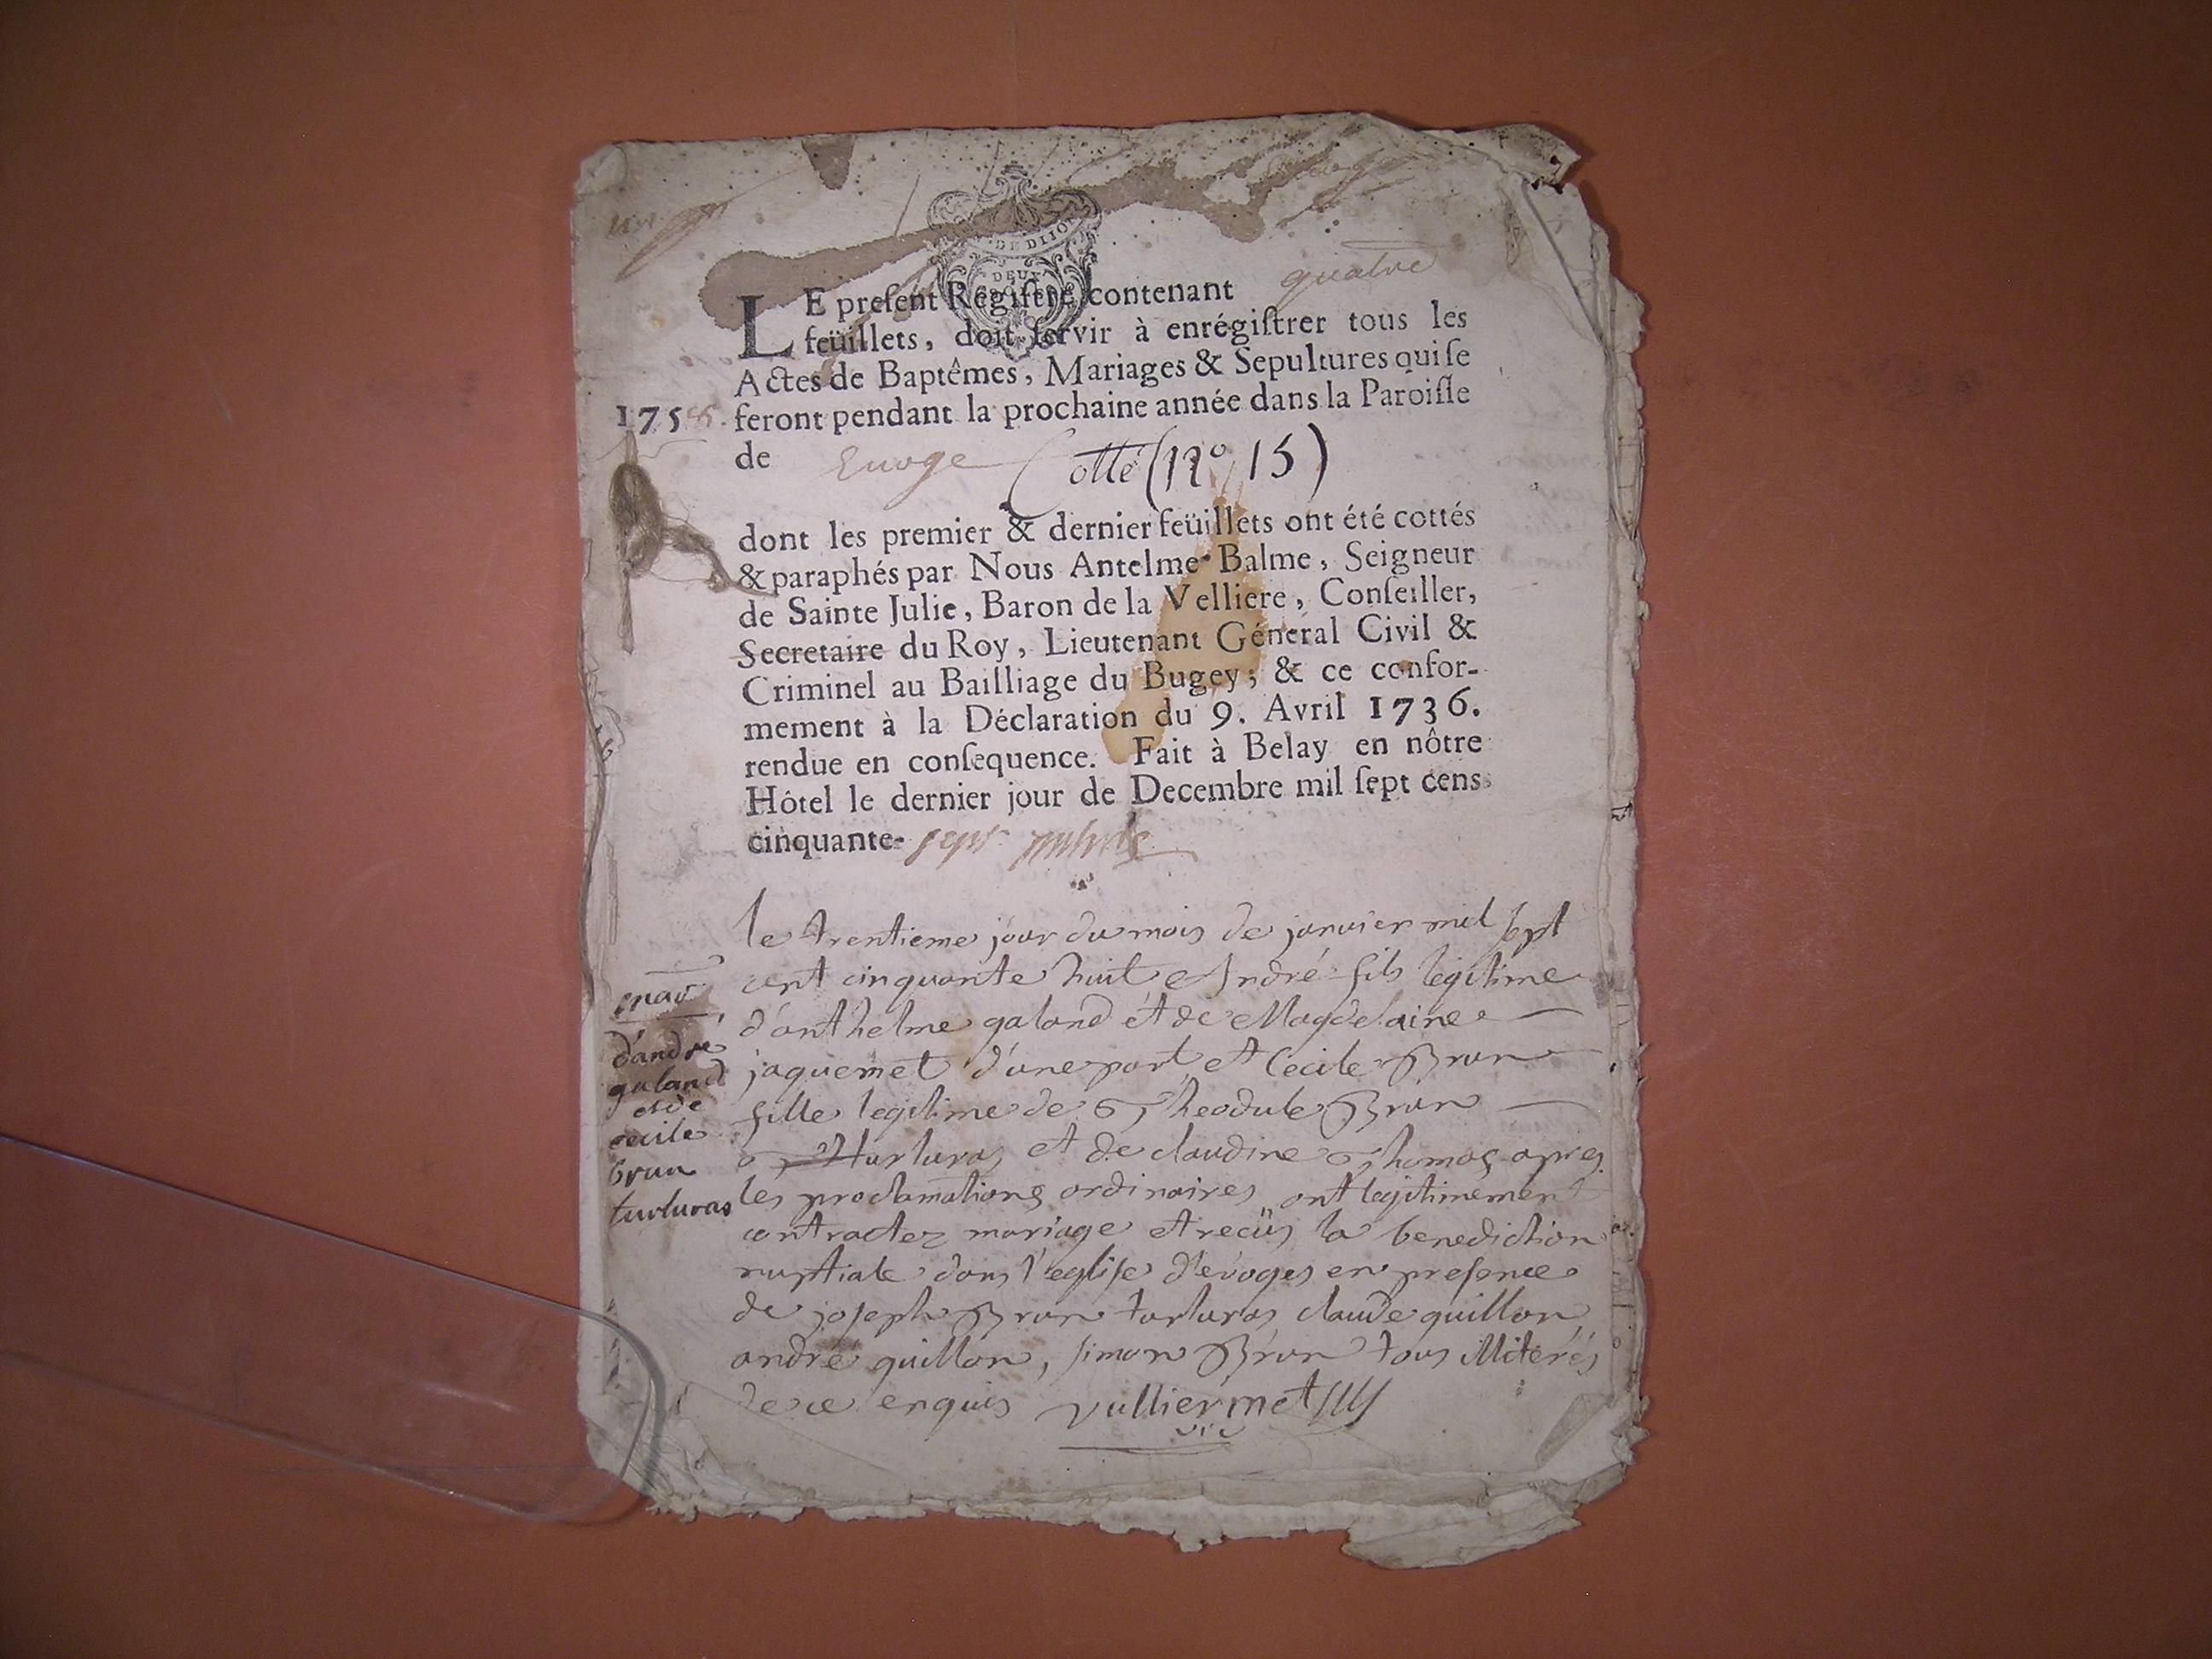 DE DIJON
DEUX
quatre
LE preſent Regiſtre contenant
feüillets, doit ſervir à enrégiſtrer tous les
Actes de Baptêmes, Mariages & Sepultures qui ſe
1758. feront pendant la prochaine année dans la Paroiſſe
de Evoge Cotté (n° 15)
dont les premier & dernier feüillets ont été cottés
& paraphés par Nous Antelme Balme, Seigneur
de Sainte Julie, Baron de la Velliere, Conſeiller,
Secretaire du Roy, Lieutenant Géneral Civil &
Criminel au Bailliage du Bugey; & ce confor-
mement à la Déclaration du 9. Avril 1736.
rendue en conſequence. Fait à Belay en nôtre
Hôtel le dernier jour de Decembre mil ſept cens
cinquante- sept
le trentieme jour du mois de janvier mil sept
cent cinquante huit André fils legitime
d'anthelme galand et de Magdelaine
jaquemet d'une part, et Cecile Brun
fille legitime de Theodule Brun
Turluras et de claudine Thomas apres
les proclamations ordinaires ont legitimement
contractez mariage et reçüs la benediction
nuptiale dans l'eglise d'évoges en presence
de joseph Brun turluras claude quillon
andré quillon, simon Brun tous illiterés
de ce enquis vulliermet
mar
d'andré
galand
et de
cecile
brun
turluras